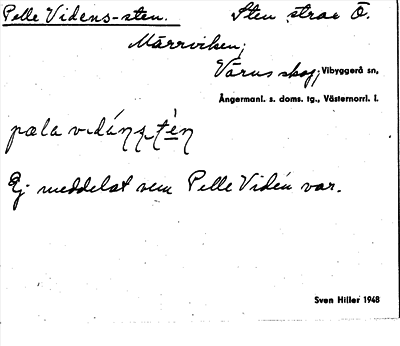 Pelle Videns-sten. Sten strax Ö.
Märrviken;
Värns skog, Vibyggerå sn,
Ångermanl. s. doms. tg., Västernorrl. l.
Ej meddelat vem Pelle Vidén var.
Sven Hiller 1948